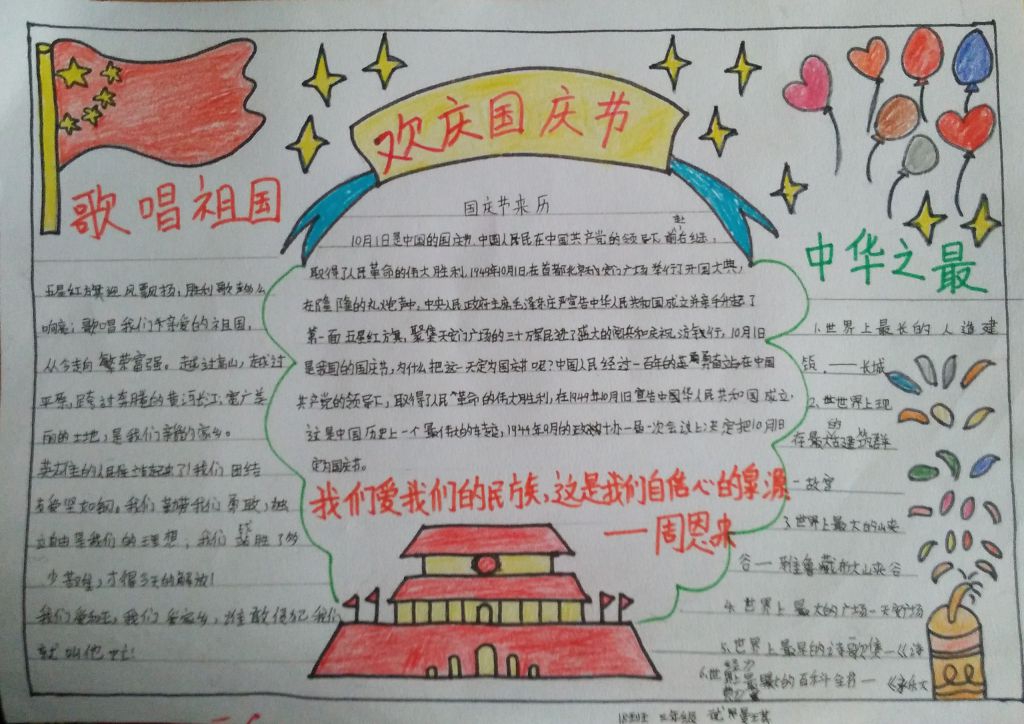 欢庆国庆节
歌唱祖国
五星红旗迎风飘扬,胜利歌声多么
响亮;歌唱我们亲爱的祖国,
从今走向繁荣富强。越过高山,越过
平原,跨过奔腾的黄河长江;宽广美
丽的土地,是我们亲爱的家乡。
英雄的人民站起来了!我们团结
友爱坚如钢。我们勤劳我们勇敢,独
立自由是我们的理想;我们战胜了多
少苦难,才得今天的解放!
我们爱和平,我们爱家乡,谁敢侵犯我们
就叫他亡!
国庆节来历
10月1日是中国的国庆节.中国人民在中国共产党的领导下,前赴后继,
取得了人民革命的伟大胜利.1949年10月1日在首都北京天安门广场举行了开国大典,
在隆隆的礼炮声中,中央人民政府主席毛泽东庄严宣告中华人民共和国成立并亲手升起了
第一面五星红旗,聚集天安门广场的三十万军民进了盛大的阅兵和庆祝游行,10月1日
是我国的国庆节,为什么把这一天定为国庆节呢?中国人民经过一百年的英勇奋战在中国
共产党的领导下,取得了人民革命的伟大胜利,在1949年10月1日宣告中國华人民共和国成立,
这是中国历史上一个最伟大的转变,1949年9月的政协十办一届一次会议上决定把10月1日
定为国庆节。
我们爱我们的民族,这是我们自信心的泉源
—周恩来
中华之最
1.世界上最长的人造建
筑.——长城
2.世世界上现
在最大的建筑群
—故宫
3.世界上最大的山峡
谷—雅鲁藏布大峡谷
4.世界上最大的广场—天安门广场
5.世界上最早的诗歌集—《诗
6.世界上最大的百科全书—《永乐大